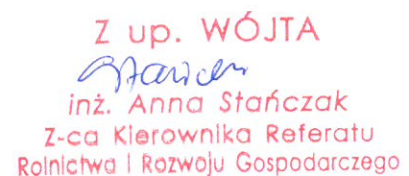 Z up. WÓJTA
inż. Anna Stańczak
Z-ca Kierownika Referatu
Rolnictwa i Rozwoju Gospodarczego